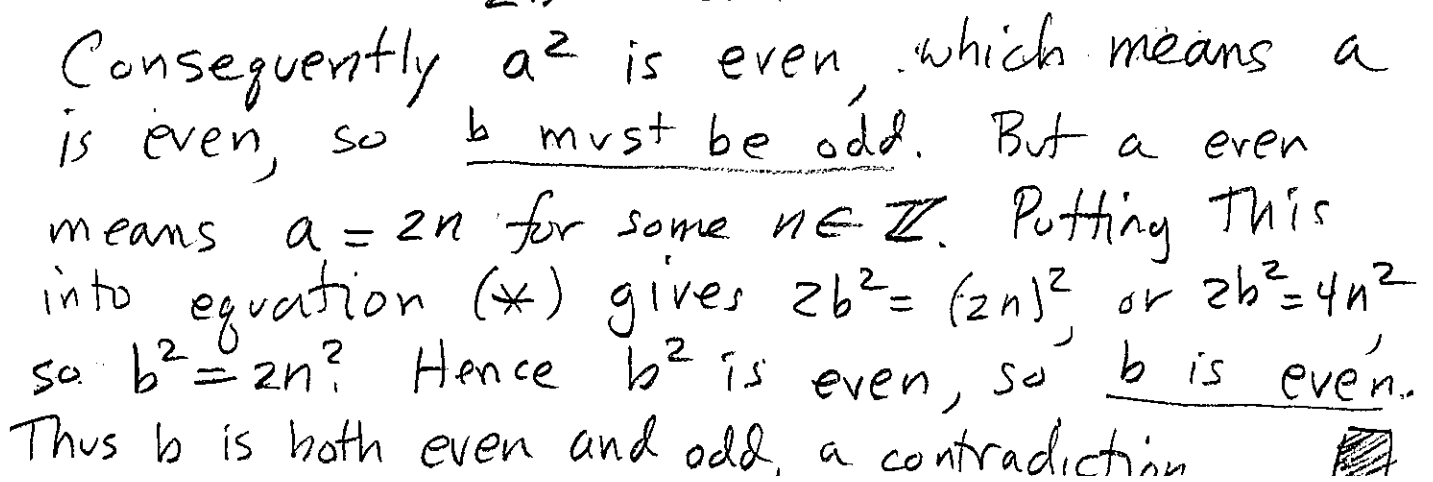 Consequently a² is even, which means a
is even, so b must be odd. But a even
means a = 2n for some n ∈ ℤ. Putting This
into equation (*) gives 2b² = (2n)², or 2b² = 4n²,
so b² = 2n². Hence b² is even, so b is even.
Thus b is both even and odd, a contradiction